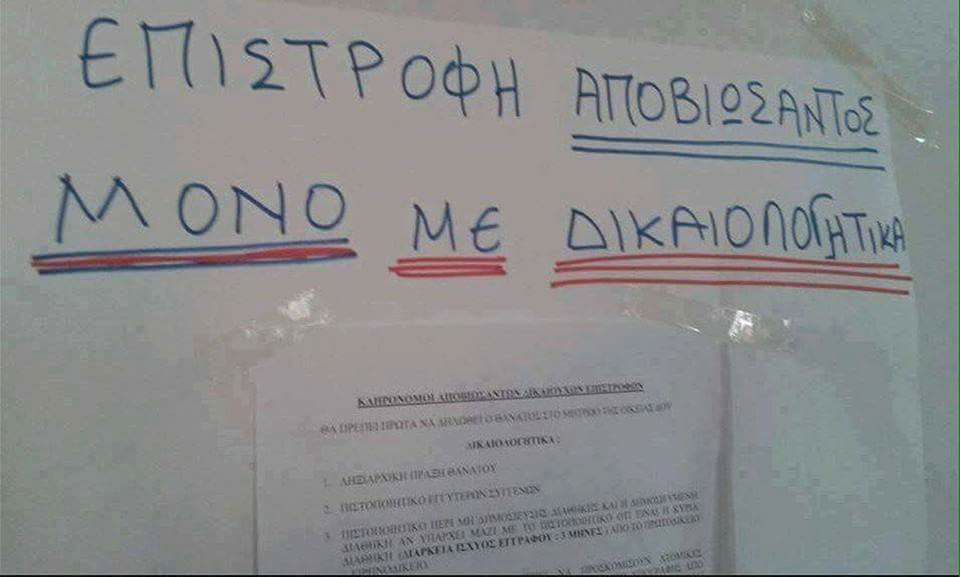 ΕΠΙΣΤΡΟΦΗ ΑΠΟΒΙΩΣΑΝΤΟΣ
ΜΟΝΟ ΜΕ ΔΙΚΑΙΟΛΟΓΗΤΙΚΑ
ΚΛΗΡΟΝΟΜΟΙ ΑΠΟΒΙΩΣΑΝΤΩΝ ΔΙΚΑΙΟΥΧΩΝ ΕΠΙΣΤΡΟΦΩΝ
ΘΑ ΠΡΕΠΕΙ ΠΡΩΤΑ ΝΑ ΔΗΛΩΘΕΙ Ο ΘΑΝΑΤΟΣ ΣΤΟ ΜΗΤΡΩΟ ΤΗΣ ΟΙΚΕΙΑΣ ΔΟΥ
ΔΙΚΑΙΟΛΟΓΗΤΙΚΑ :
1. ΛΗΞΙΑΡΧΙΚΗ ΠΡΑΞΗ ΘΑΝΑΤΟΥ
2. ΠΙΣΤΟΠΟΙΗΤΙΚΟ ΕΓΓΥΤΕΡΩΝ ΣΥΓΓΕΝΩΝ
3. ΠΙΣΤΟΠΟΙΗΤΙΚΟ ΠΕΡΙ ΜΗ ΔΗΜΟΣΙΕΥΣΗΣ ΔΙΑΘΗΚΗΣ ΚΑΙ Η ΔΗΜΟΣΙΕΥΜΕΝΗ
ΔΙΑΘΗΚΗ ΑΝ ΥΠΑΡΧΕΙ ΜΑΖΙ ΜΕ ΤΟ ΠΙΣΤΟΠΟΙΗΤΙΚΟ ΟΤΙ ΕΙΝΑΙ Η ΚΥΡΙΑ
ΔΙΑΘΗΚΗ (ΔΙΑΡΚΕΙΑ ΙΣΧΥΟΣ ΕΓΓΡΑΦΟΥ : 3 ΜΗΝΕΣ ) ΑΠΟ ΤΟ ΠΡΩΤΟΔΙΚΕΙΟ
ΕΙΡΗΝΟΔΙΚΕΙΟ
ΝΑ ΠΡΟΣΚΟΜΙΣΟΥΝ ΑΤΟΜΙΚΕΣ
ΑΠΟ